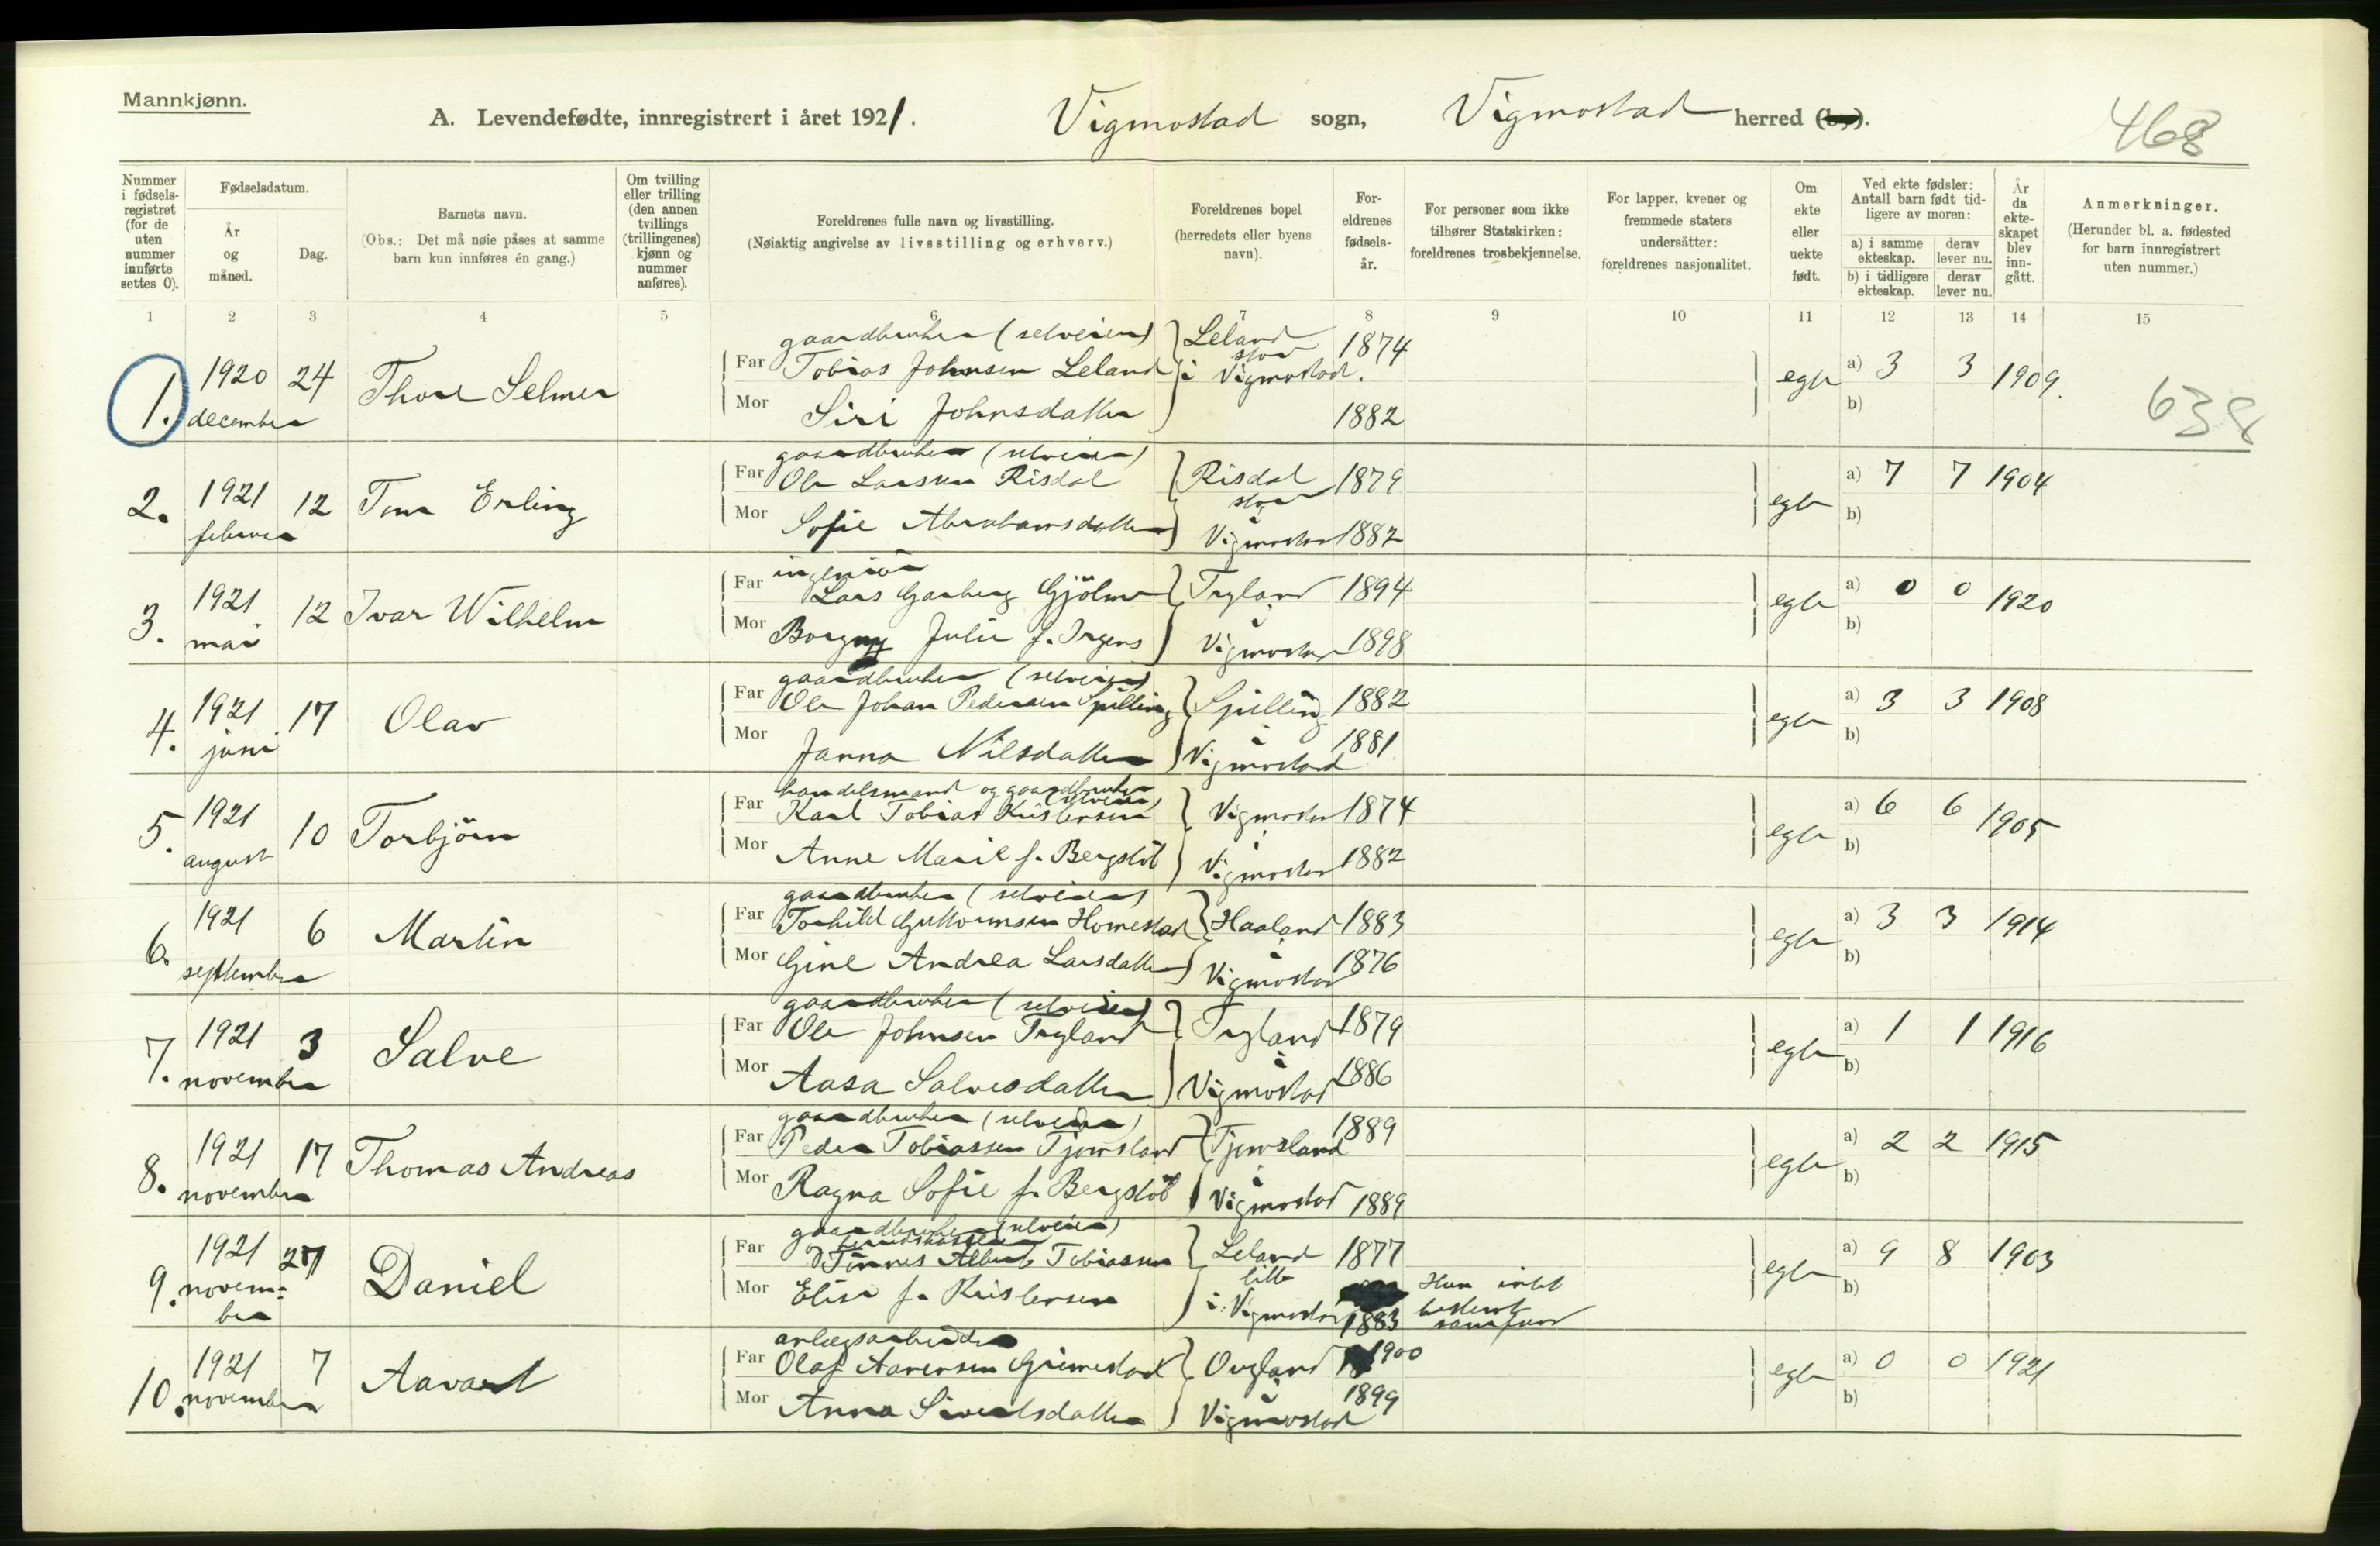 Mannkjønn.
A. Levendefødte, innregistrert i året 1921. Vigmostad sogn, Vigmostad herred
468
Nummer i fødselsregistret (for de uten nummer innførte settes 0).
Fødselsdatum.
År og måned.
Dag.
Barnets navn.
(Obs.: Det må nøie påses at samme barn kun innføres én gang.)
Om tvilling eller trilling (den annen tvillings (trillingenes) kjønn og nummer anføres).
Foreldrenes fulle navn og livsstilling.
(Nøiaktig angivelse av livsstilling og erhverv.)
Foreldrenes bopel (herredets eller byens navn).
Foreldrenes fødselsår.
For personer som ikke tilhører Statskirken: foreldrenes trosbekjennelse.
For lapper, kvener og fremmede staters undersåtter: foreldrenes nasjonalitet.
Om ekte eller uekte født.
Ved ekte fødsler: Antall barn født tidligere av moren:
a) i samme ekteskap. derav lever nu.
b) i tidligere ekteskap. derav lever nu.
År da ekteskapet blev inngått.
Anmerkninger.
(Herunder bl. a. fødested for barn innregistrert uten nummer.)
1 2 3 4 5 6 7 8 9 10 11 12 13 14 15
1. 1920 december 24 Thore Selmer
gaardbruker (selveier)
Far Tobias Johnsen Leland
Mor Siri Johnsdatter
Leland stor i Vigmostad.
1874
1882
egte a) 3 3 1909.
b)
638
2. 1921 februar 12 Tom Erling
gaardbruker (selveier)
Far Ole Larsen Risdal
Mor Sofie Abrahamsdatter
Risdal stor i Vigmostad
1879
1882
egte a) 7 7 1904
b)
3. 1921 mai 12 Ivar Wilhelm
ingeniør
Far Lars Garberg Gjölme
Mor Borgny Julie f. Irgens
Tryland i Vigmostad
1894
1898
egte a) 0 0 1920
b)
4. 1921 juni 17 Olav
gaardbruker (selveier)
Far Ole Johan Pedersen Spilling
Mor Janna Nilsdatter
Spilling i Vigmostad
1882
1881
egte a) 3 3 1908
b)
5. 1921 august 10 Torbjörn
handelsmand og gaardbruker (selveier)
Far Karl Tobias Kristensen
Mor Anne Marie f. Bergstöl
Vigmostad i Vigmostad
1874
1882
egte a) 6 6 1905
b)
6. 1921 september 6 Martin
gaardbruker (selveier)
Far Torkild Guttormsen Homestad
Mor Gine Andrea Larsdatter
Haaland i Vigmostad
1883
1876
egte a) 3 3 1914
b)
7. 1921 november 3 Salve
gaardbruker (selveier)
Far Ole Johnsen Tryland
Mor Aasa Salvesdatter
Tryland i Vigmostad
1879
1886
egte a) 1 1 1916
b)
8. 1921 november 17 Thomas Andreas
gaardbruker (selveier)
Far Peder Tobiassen Tjomsland
Mor Ragna Sofie f. Bergstöl
Tjomsland i Vigmostad
1889
1889
egte a) 2 2 1915
b)
9. 1921 november 27 Daniel
gaardbruker (selveier)
og herredskasserer
Far Tönnes Albert Tobiassen
Mor Elise f. Kristensen
Leland lille i Vigmostad
1877
1883
Hun intet bestemt samfund
egte a) 9 8 1903
b)
10. 1921 november 7 Aavart
anlægsarbeider
Far Olaf Aanensen Grimestad
Mor Anna Sivertsdatter
Ougland i Vigmostad
1900
1899
egte a) 0 0 1921
b)